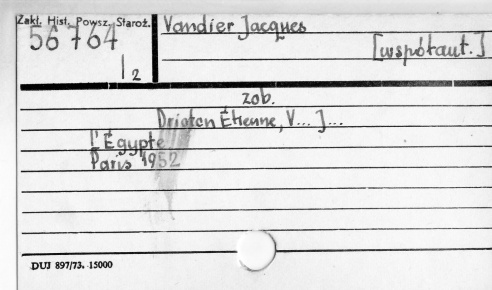 Zakł. Hist. Powsz. Staroż.
56764
1 2
Vandier Jacques
[współaut.]
zob.
Drioton Étienne, V... J...
l'Égypte
Paris 1952
DUJ 897/73. 15000